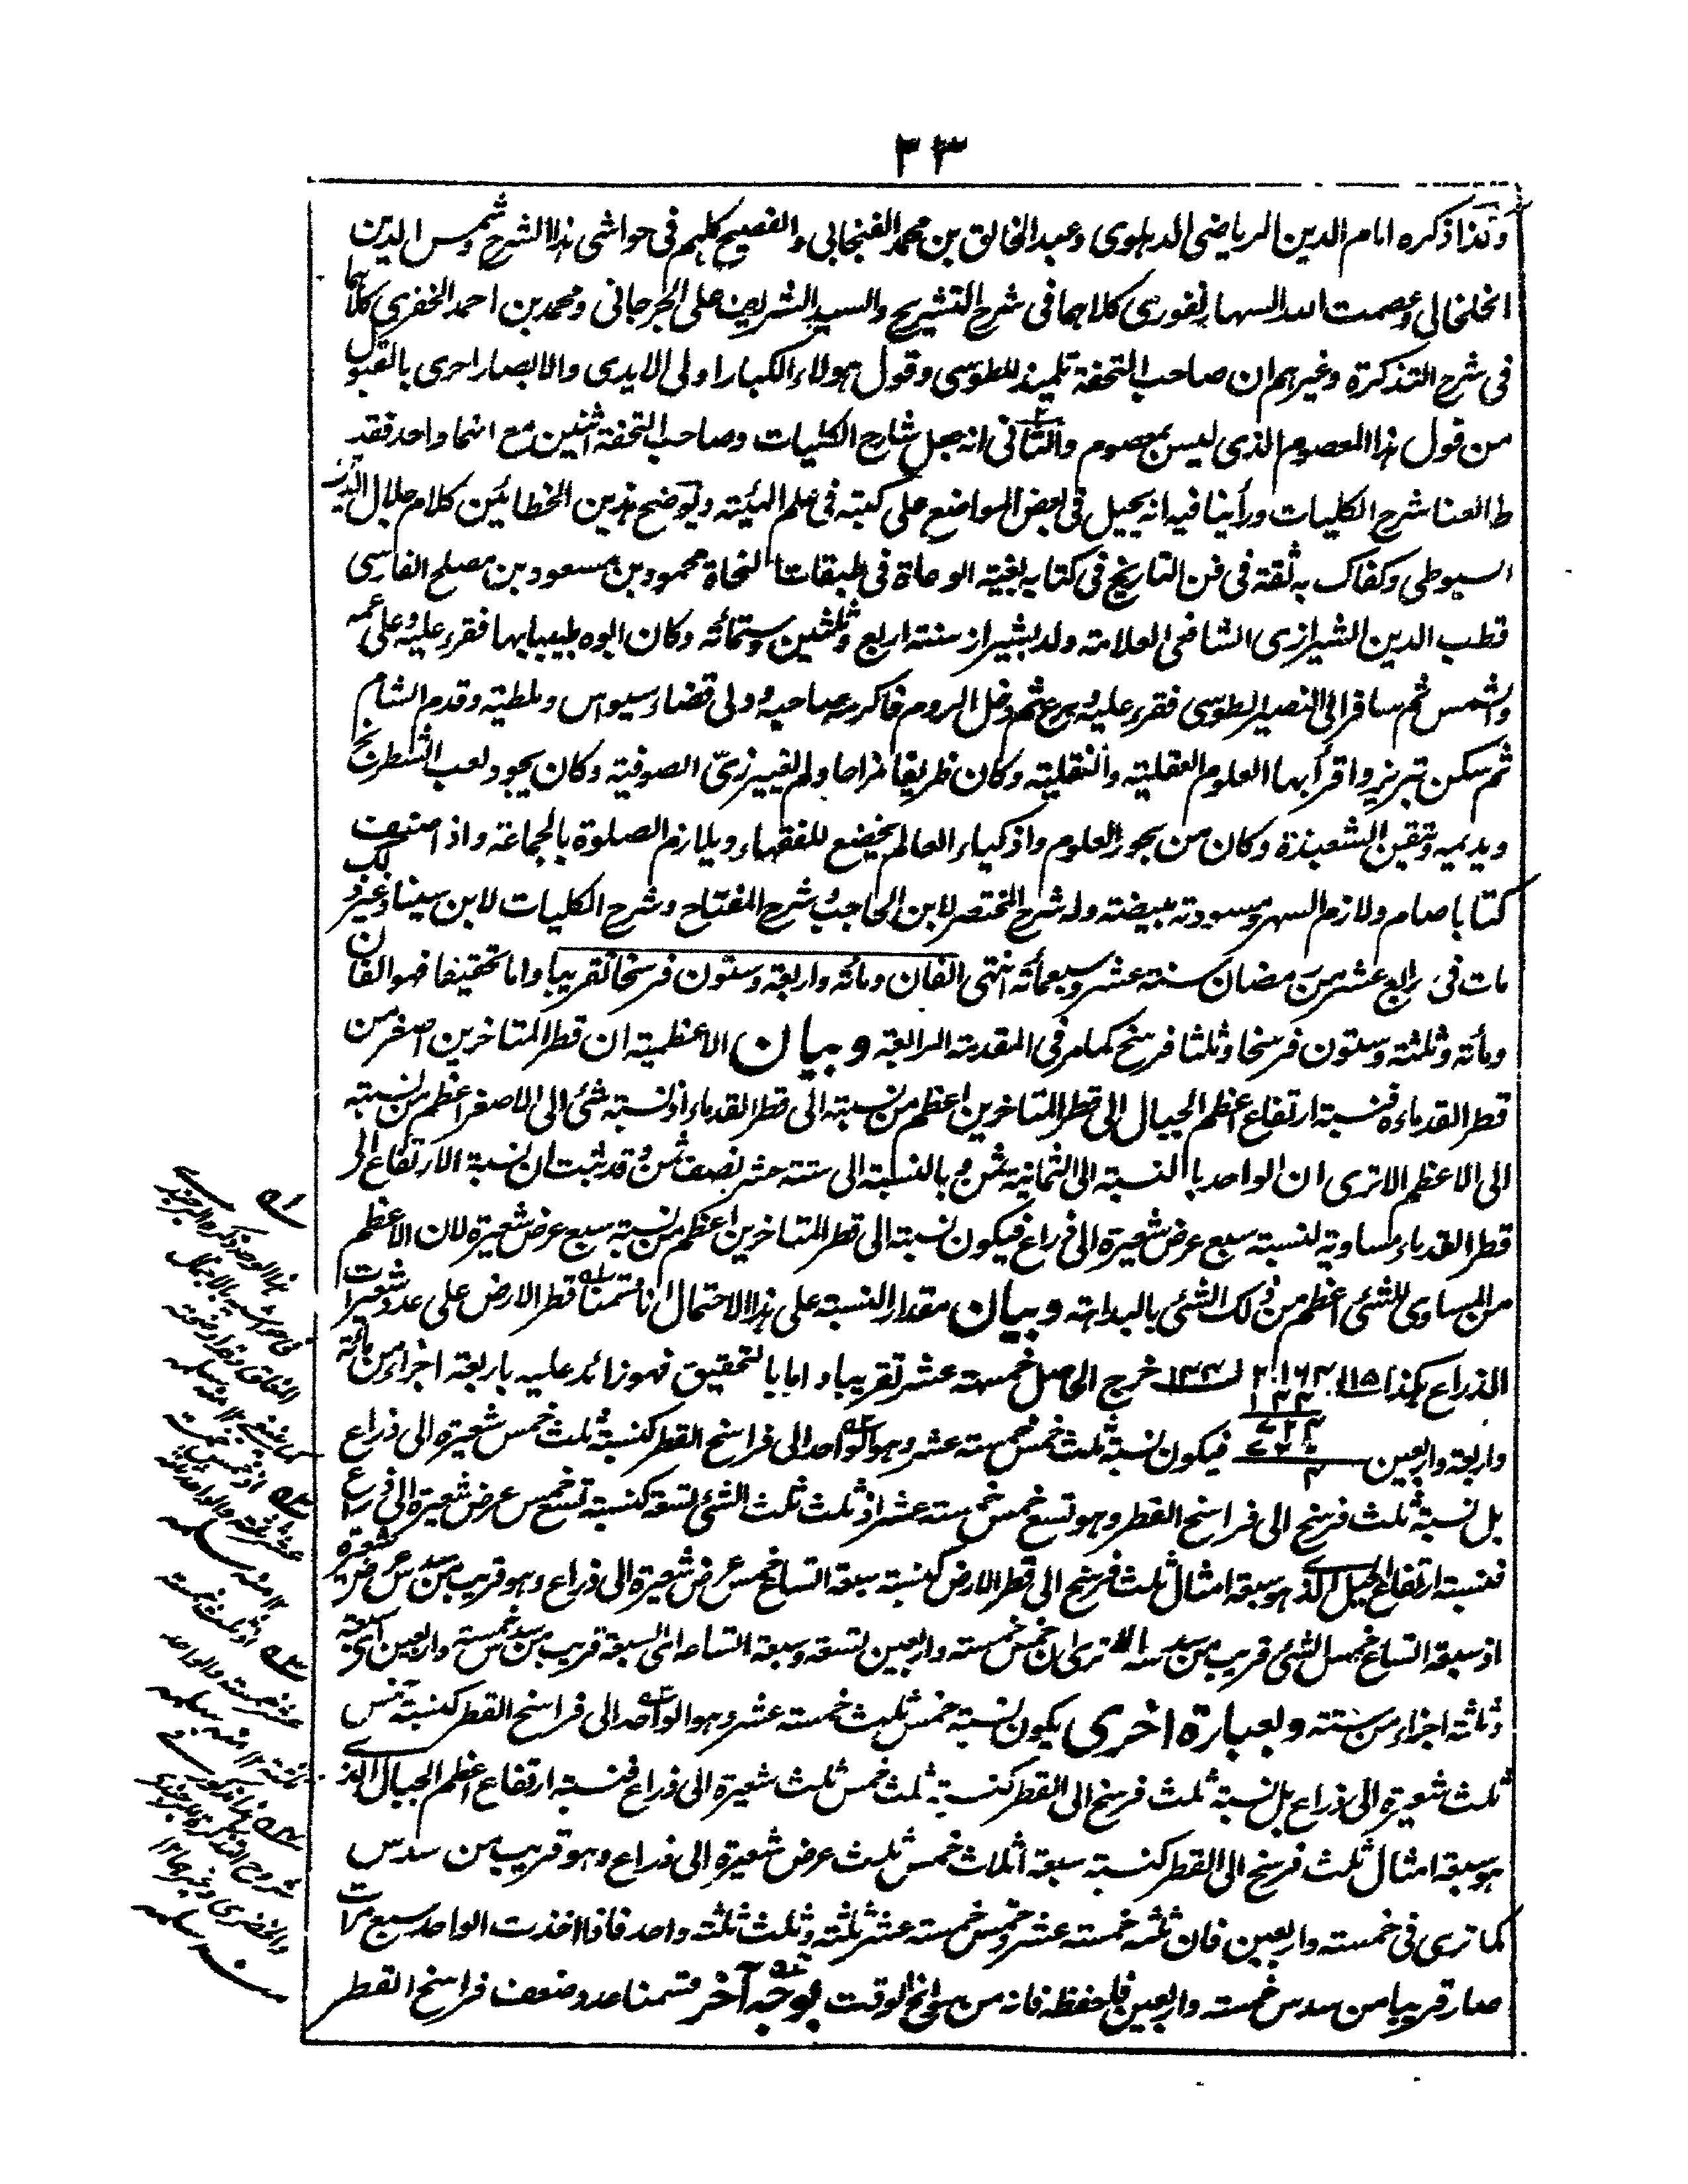 ٣٣
وكذا ذكره امام الدين الرياضي الدهلوي وعبد الخالق بن محمد الفنجابي والفصيح كلهم في حواشي هذا الشرح وشمس الدين
الخلخالي وعصمت الله السهارنفوري كلاهما في شرح التشريح والسيد الشريف علي الجرجاني ومحمد بن احمد الخفري كلاهما
في شرح التذكرة وغيرهم ان صاحب التحفة تلميذ للطوسي وقول هولاء الكبار اولى الايدى والابصار احرى بالقبول
من قول هذا المعصوم الذي ليس بمعصوم والثاني انه جعل شارح الكليات وصاحب التحفة اثنين مع انهما واحد فقد
طالعنا شرح الكليات ورأينا فيه انه يحيل في بعض المواضع على كتبه في علم الهيئة ويوضح هذين الخطائين كلام جلال الدين
السيوطي وكفاك به ثقة في فن التاريخ في كتابه بغية الوعاة في طبقات النحاة محمود بن مسعود بن مصلح الفارسي
قطب الدين الشيرازي الشافعي العلامة ولد بشيراز سنة اربع وثلثين وستمائة وكان ابوه طبيبا بها فقرء عليه وعلى عمه
والشمس ثم سافر الى النصير الطوسي فقرء عليه وبرع ثم دخل الروم فاكرمه صاحبه وولى قضاء سيواس وملطية وقدم الشام
ثم سكن تبريز واقرأ بها العلوم العقلية والنقلية وكان ظريفا مزاحا ولم يغير زيّ الصوفية وكان يجود لعب الشطرنج
ويديمه وتقين الشعبذة وكان من بحور العلوم واذكياء العالم يخضع للفقهاء ويلازم الصلوة بالجماعة واذا صنف
كتابا صام ولازم السهر ومسودته مبيضته وله شرح المختصر لابن الحاجب وشرح المفتاح وشرح الكليات لابن سينا وغير ذلك
مات في رابع عشر من رمضان سنة عشر وسبعمائة انتهى الفان ومائة واربعة وستون فرسخا تقريبا واما تحقيقا فهو الفان
ومائة وثلثة وستون فرسخا وثلثا فرسخ كما مر في المقدمة الرابعة وبيان الاعظمية ان قطر المتاخرين اصغر من
قطر القدماء فنسبة ارتفاع اعظم الجبال الى قطر المتاخرين اعظم من نسبته الى قطر القدماء اذ نسبة شئ الى الاصغر اعظم من نسبته
الى الاعظم الا ترى ان الواحد بالنسبة الى الثمانية ثمن وبالنسبة الى ستة عشر نصف ثمن وقد ثبت ان نسبة الارتفاع الى
قطر القدماء مساوية لنسبة سبع عرض شعيرة الى ذراع فيكون نسبته الى قطر المتاخرين اعظم من نسبة سبع عرض شعيرة لان الاعظم
من المساوى للشئ اعظم من ذلك الشئ بالبداهة وبيان مقدار النسبة على هذا الاحتمال انا قسمنا قطر الارض على عدد شعيرات
الذراع هكذا خرج الحاصل خمسة عشر تقريبا واما بالتحقيق فهو زائد عليه باربعة اجزاء من مائة
واربعة واربعين فيكون نسبة ثلث خمس خمسة عشر وهو الواحد الى فراسخ القطر كنسبة ثلث خمس شعيرة الى ذراع
بل نسبة ثلث فرسخ الى فراسخ القطر وهو تسع خمس خمسة عشر اذ ثلث ثلث الشئ تسعه كنسبة تسع خمس عرض شعيرة الى ذراع
فنسبة ارتفاع الجبل الذي هو سبعة امثال ثلث فرسخ الى قطر الارض كنسبة سبعة اتساع خمس عرض شعيرة الى ذراع وهو قريب من سدس عرض شعيرة
اذ سبعة اتساع خمس الشئ قريب من سدسه الا ترى ان خمس خمسة واربعين تسعة وسبعة اتساعه اى السبعة قريب من سدس خمسة واربعين اى سبعة
وثلثة اجزاء من ستة وبعبارة اخرى يكون نسبة خمس ثلث خمسة عشر وهو الواحد الى فراسخ القطر كنسبة خمس
ثلث شعيرة الى ذراع بل نسبة ثلث فرسخ الى القطر كنسبة ثلث خمس ثلث شعيرة الى ذراع فنسبة ارتفاع اعظم الجبال الذي
هو سبعة امثال ثلث فرسخ الى القطر كنسبة سبعة اثلاث خمس ثلث عرض شعيرة الى ذراع وهو قريب من سدس
كما ترى في خمسة واربعين فان ثلثه خمسة عشر وخمس خمسة عشر ثلثة وثلث ثلثة واحد فاذا اخذت الواحد سبع مرات
صار قريبا من سدس خمسة واربعين فاحفظه فانه من سوانح الوقت بوجه آخر قسمنا عدد ضعف فراسخ القطر